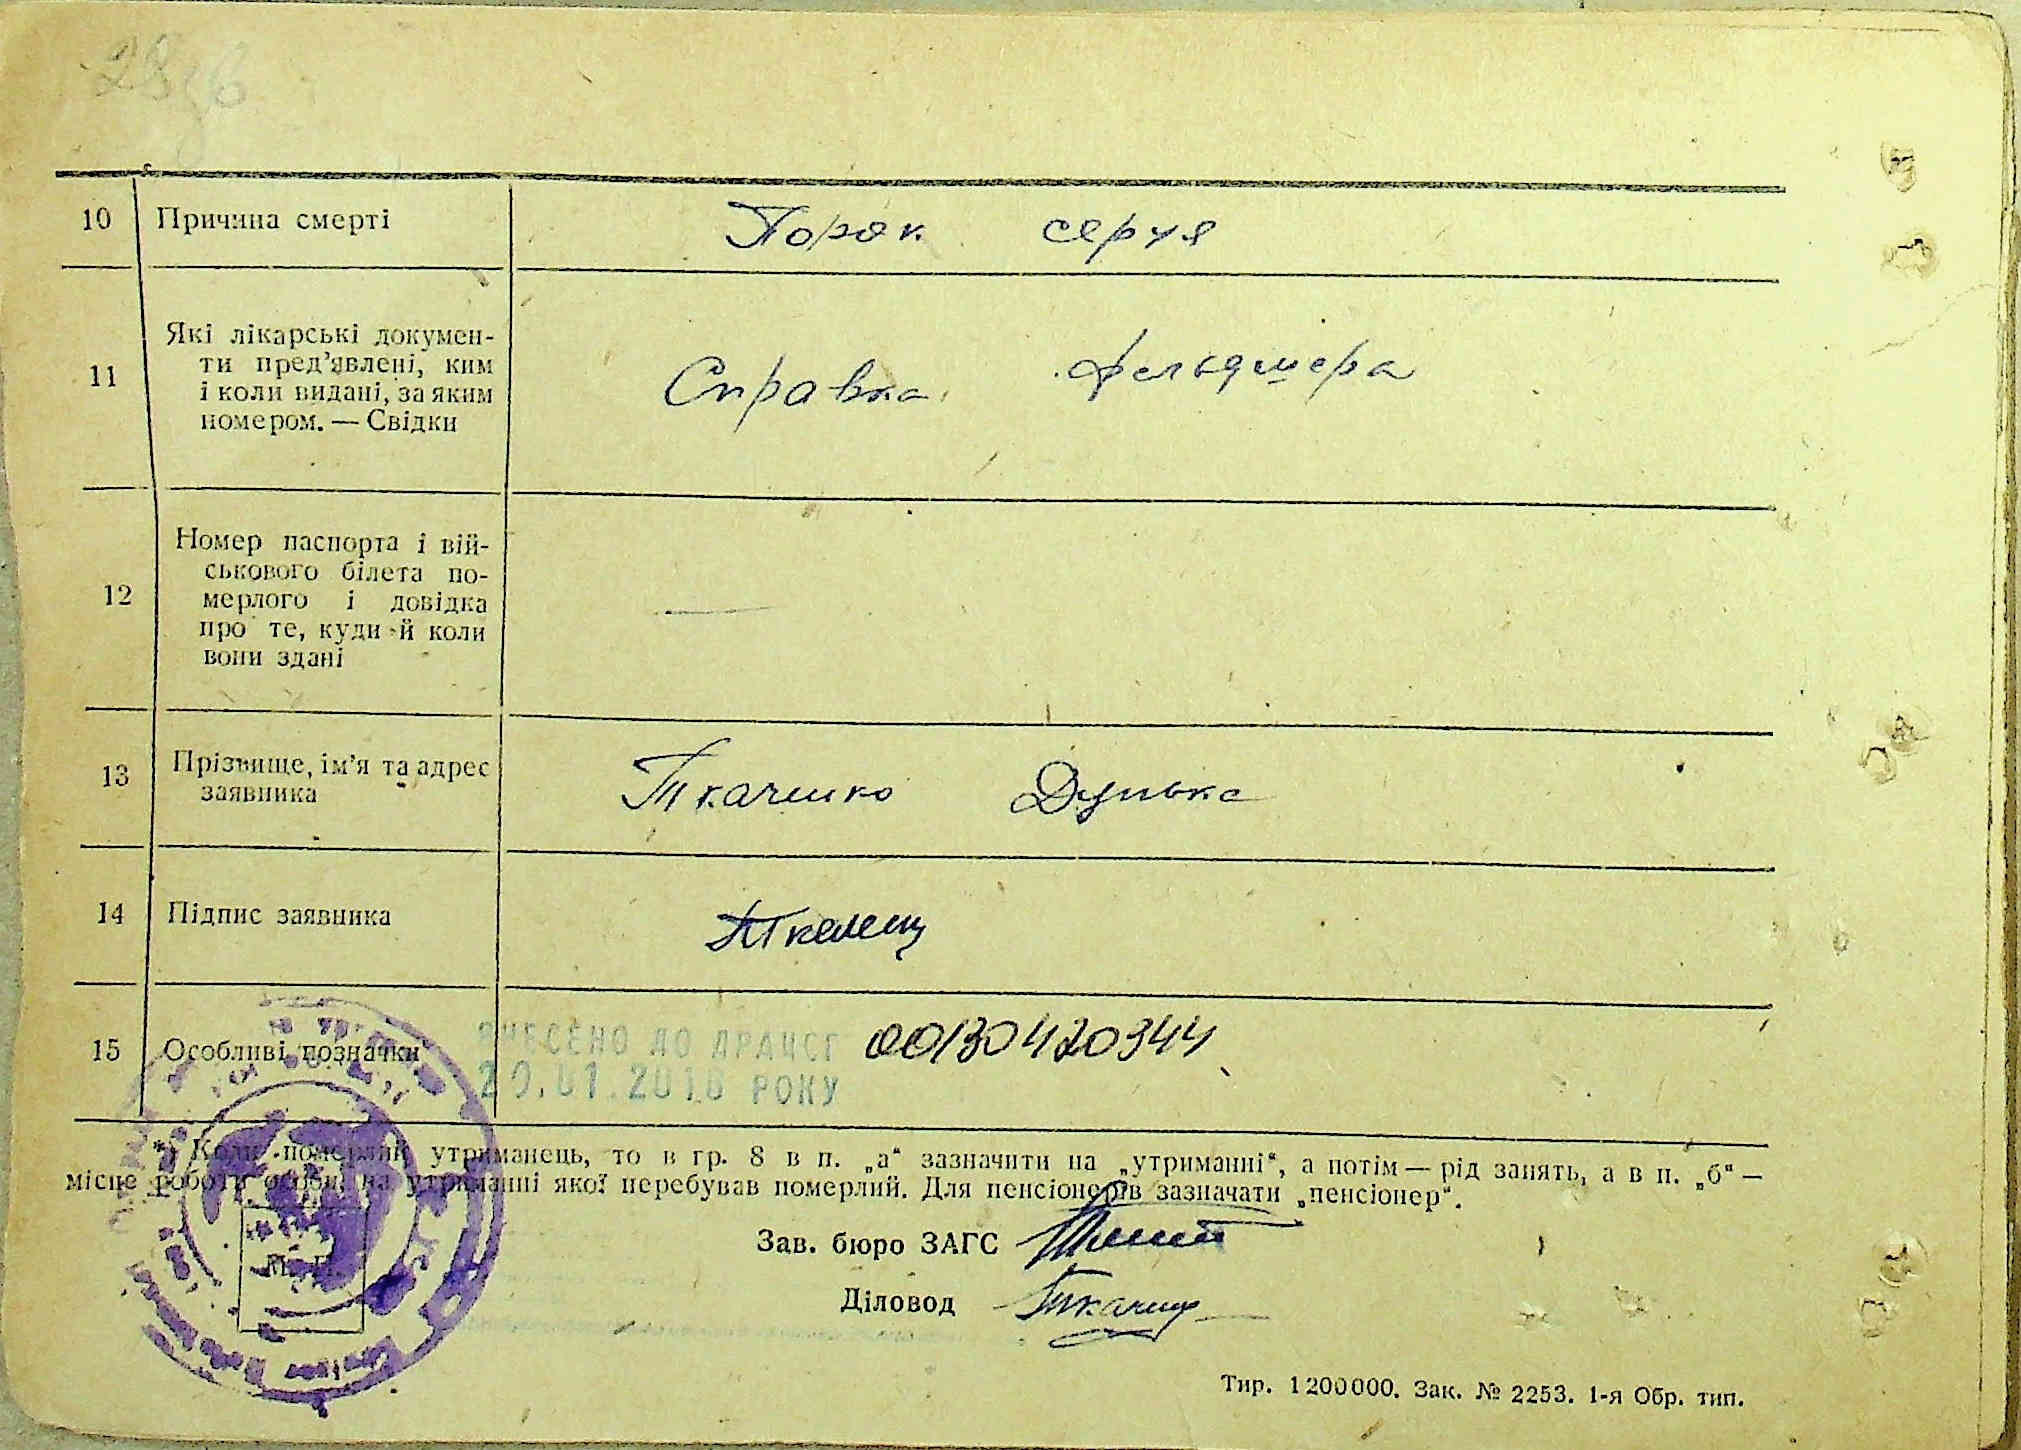 28зв
10 Причина смерті Порок серця
11 Які лікарські докумен-
ти пред’явлені, ким
і коли видані, за яким
номером. — Свідки
Справка фельдшера
12 Номер паспорта і вій-
ськового білета по-
мерлого і довідка
про те, куди й коли
вони здані
—
13 Прізвище, ім’я та адрес
заявника
Ткаченко Дунька
14 Підпис заявника
15 Особливі позначки ВНЕСЕНО ДО ДРАЦСГ 00130420944
РОКУ
*) Коли померлий утриманець, то в гр. 8 в п. „а“ зазначити на „утриманні“, а потім — рід занять, а в п. „б“ —
місце роботи особи, на утриманні якої перебував померлий. Для пенсіонерів зазначати „пенсіонер“.
М. П.
Зав. бюро ЗАГС
Діловод
Тир. 1200000. Зак. № 2253. 1-я Обр. тип.